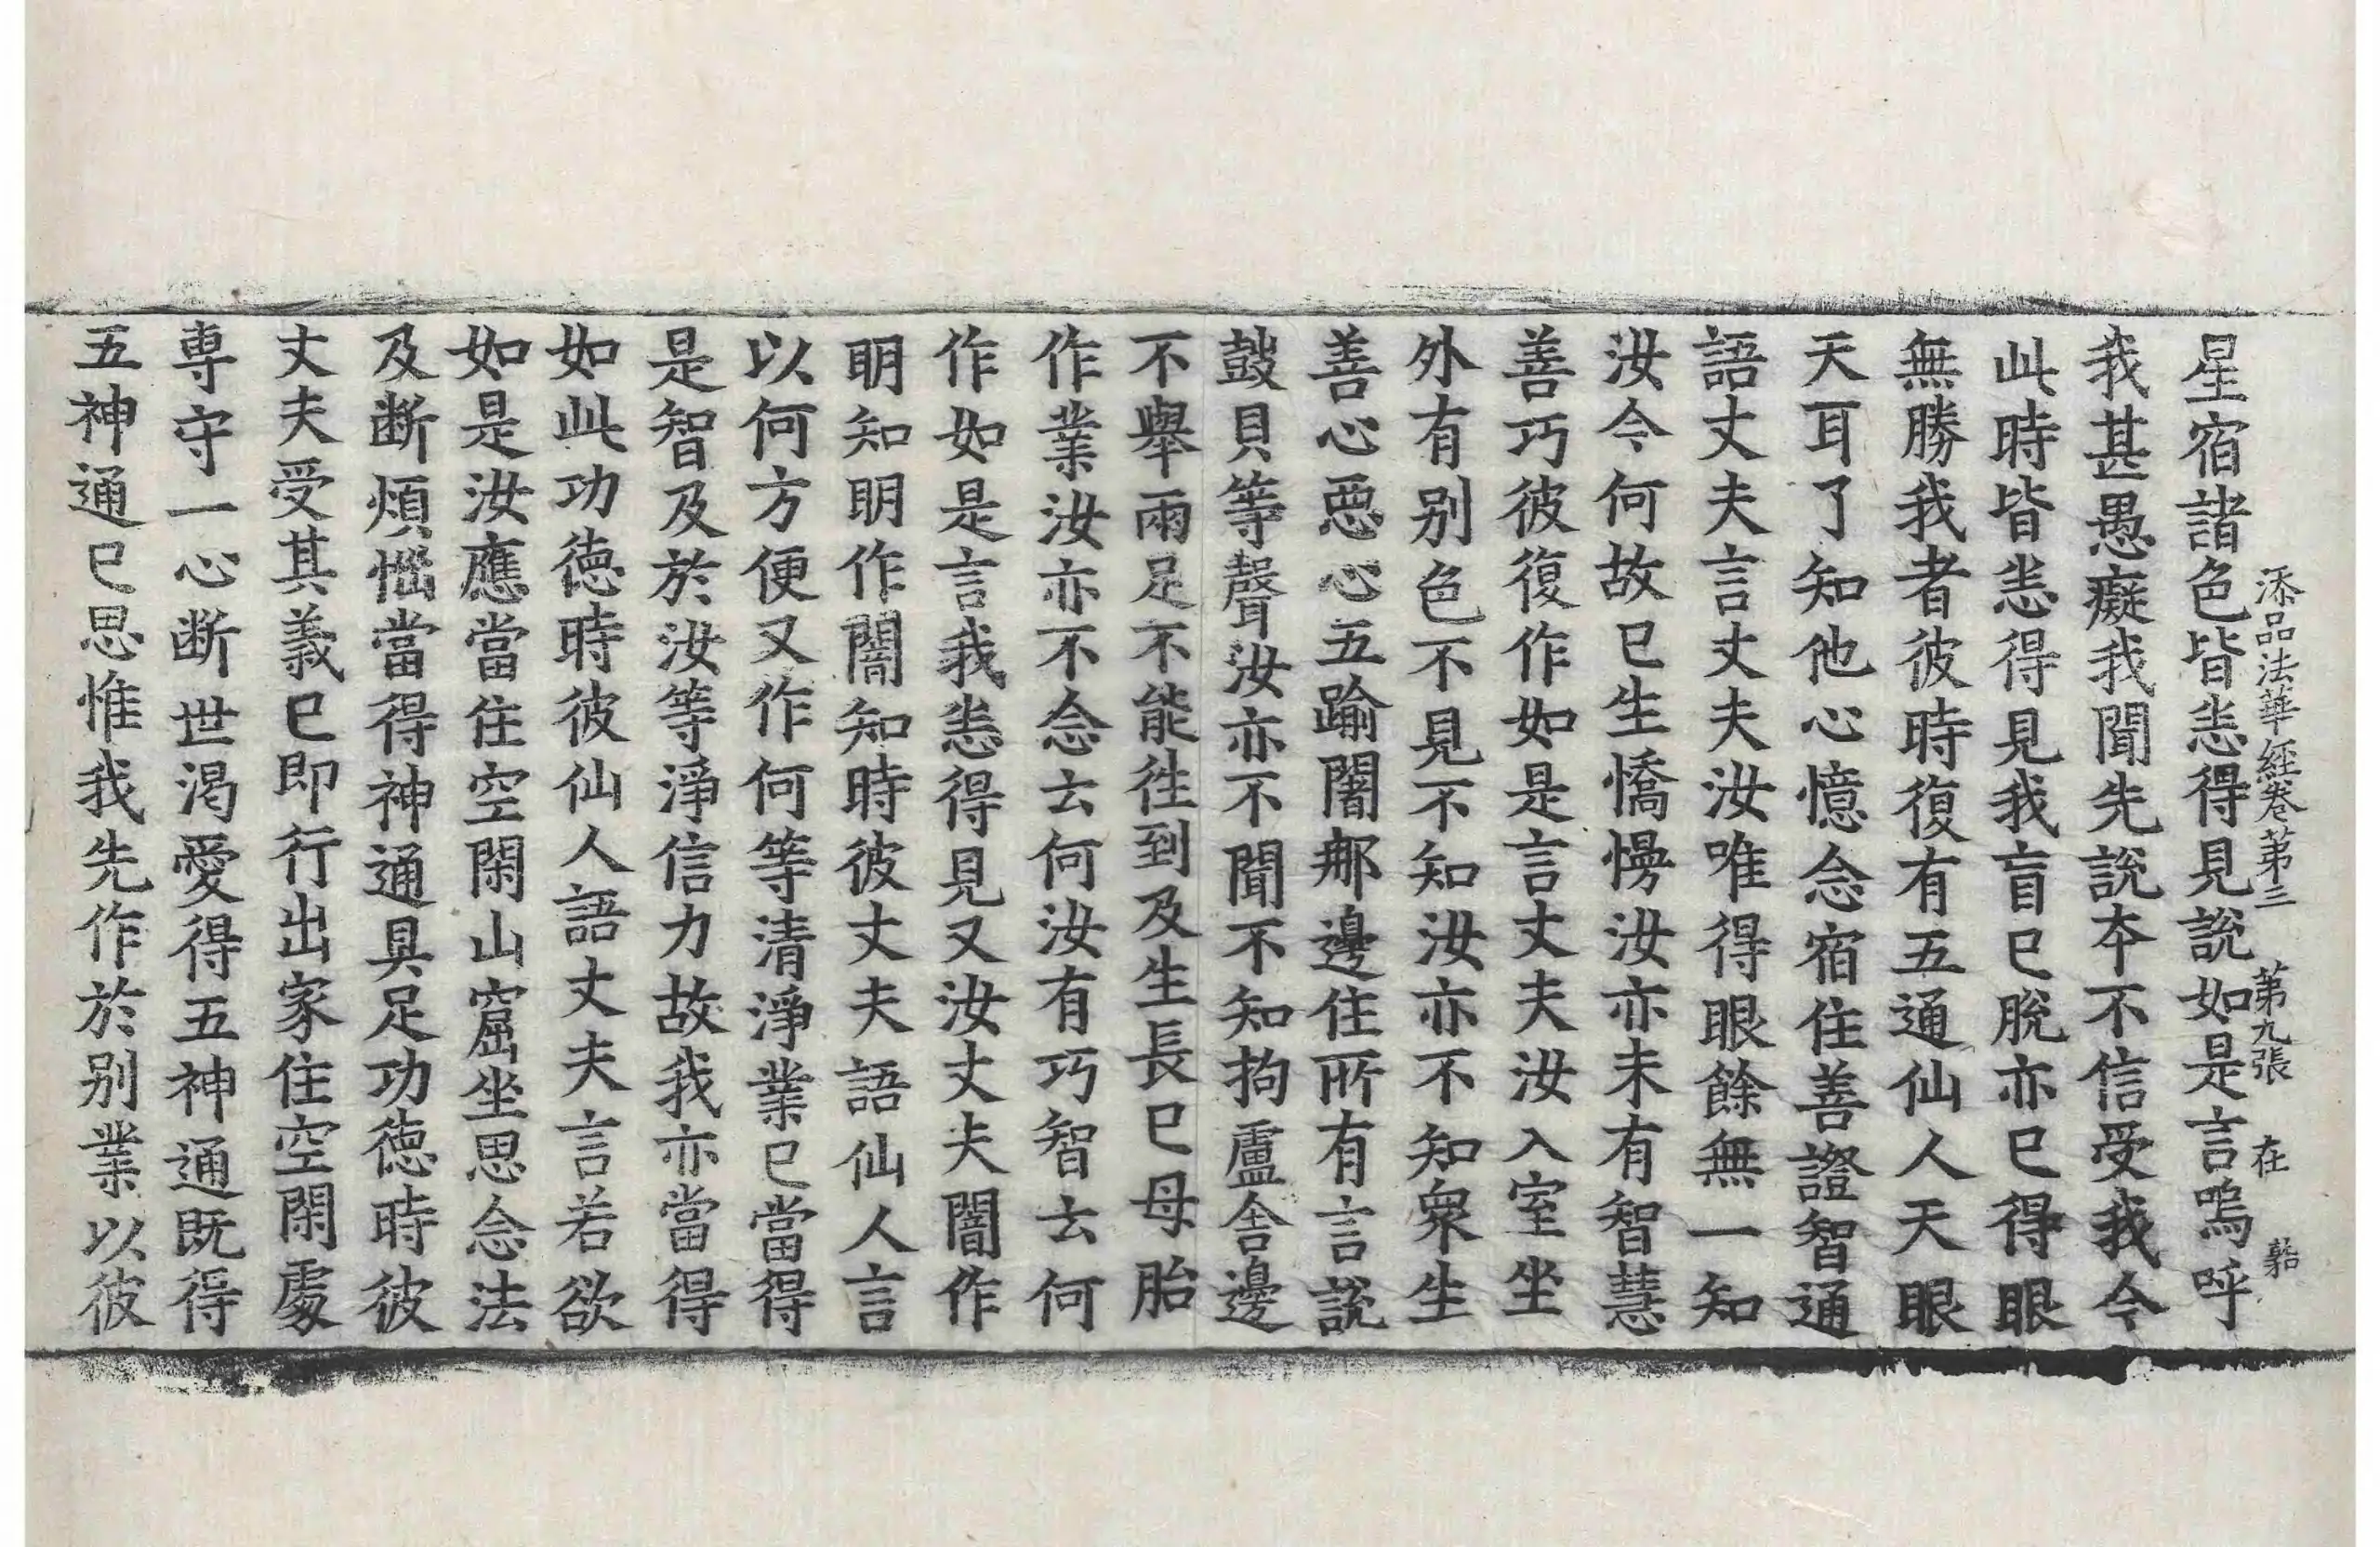 添品法華経卷第三 第九張 在
星宿諸色皆悉得見說如是言嗚呼
我甚愚癡我聞先說本不信受我今
此時皆悉得見我盲已脫亦已得眼
無勝我者彼時復有五通仙人天眼
天耳了知他心憶念宿住善證智通
語丈夫言丈夫汝唯得眼餘無一知
汝今何故已生憍慢汝亦未有智慧
善巧彼復作如是言丈夫汝入室坐
外有別色不見不知汝亦不知衆生
善心惡心五踰闍那邊住所有言說
鼓貝等聲汝亦不聞不知拘盧舍邊
不舉兩足不能往到及生長已母胎
作業汝亦不念云何汝有巧智云何
作如是言我悉得見又汝丈夫闇作
明知明作闇知時彼丈夫語仙人言
以何方便又作何等清淨業已當得
是智及於汝等淨信力故我亦當得
如此功德時彼仙人語丈夫言若欲
如是汝應當住空閑山窟坐思念法
及断煩惱當得神通具足功德時彼
丈夫受其義已即行出家住空閑處
專守一心断世渴愛得五神通既得
五神通已思惟我先作於別業以彼